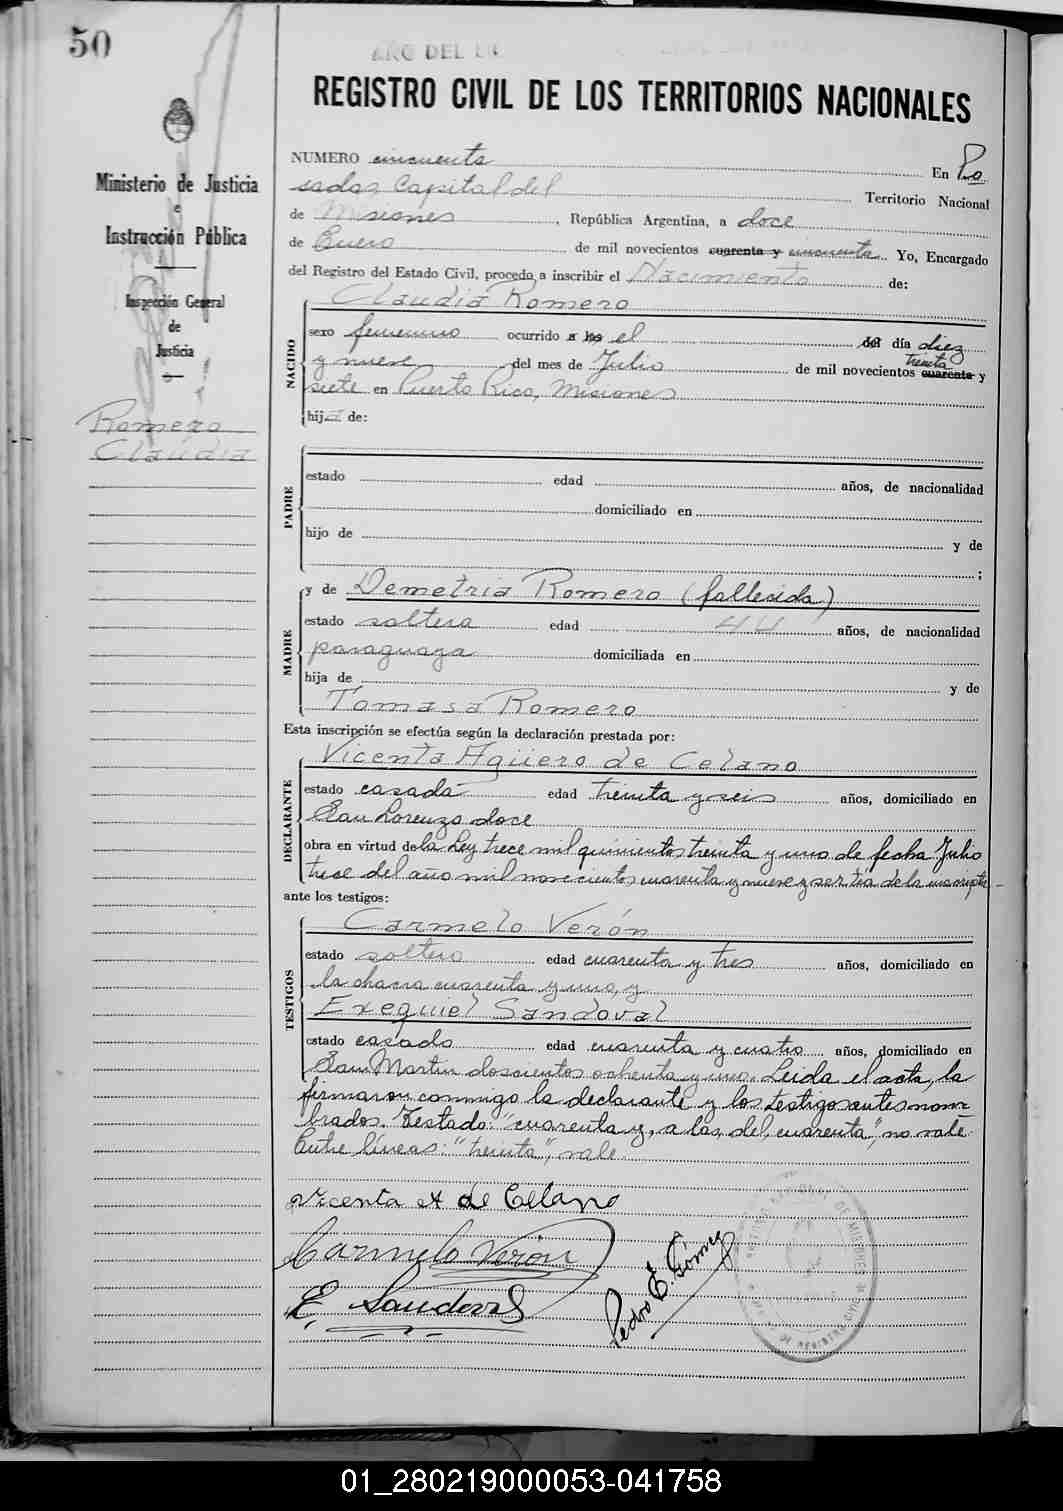 50
AÑO DEL
REGISTRO CIVIL DE LOS TERRITORIOS NACIONALES
Ministerio de Justicia
e
Instrucción Pública
Inspección General
de
Justicia
Romero
Claudia
NUMERO cincuenta En Po
sadas Capital del Territorio Nacional
de Misiones, República Argentina, a doce
de Enero de mil novecientos cuarenta y cincuenta Yo, Encargado
del Registro del Estado Civil, procedo a inscribir el Nacimiento de:
NACIDO
Claudia Romero
sexo femenino ocurrido a las el del día diez
y nueve del mes de Julio de mil novecientos treinta cuarenta y
siete en Puerto Rico, Misiones
hija de:
PADRE
estado edad años, de nacionalidad
domiciliado en
hijo de y de
;
MADRE
y de Demetria Romero (fallecida)
estado soltera edad 44 años, de nacionalidad
paraguaya domiciliada en
hija de y de
Tomasa Romero
Esta inscripción se efectúa según la declaración prestada por:
DECLARANTE
Vicenta Agüero de Celano
estado casada edad treinta y seis años, domiciliado en
San Lorenzo doce
obra en virtud de la Ley trece mil quinientos treinta y uno de fecha Julio
trece del año mil novecientos cuarenta y nueve y ser tia de la inscripta
ante los testigos:
TESTIGOS
Carmelo Verón
estado soltero edad cuarenta y tres años, domiciliado en
la chacra cuarenta y uno, y
Exequiel Sandoval
estado casado edad cuarenta y cuatro años, domiciliado en
San Martin doscientos ochenta y uno. Leida el acta, la
firmaron conmigo la declarante y los testigos antes nom-
brados. Testado: "cuarenta y, a las, del, cuarenta", no vale.
Entre líneas: "treinta", vale.
Vicenta A de Celano
Carmelo Verón
E. Sandoval
Pedro E. Gómez
DE MISIONES
DE REGISTRO CIVIL
01_280219000053-041758